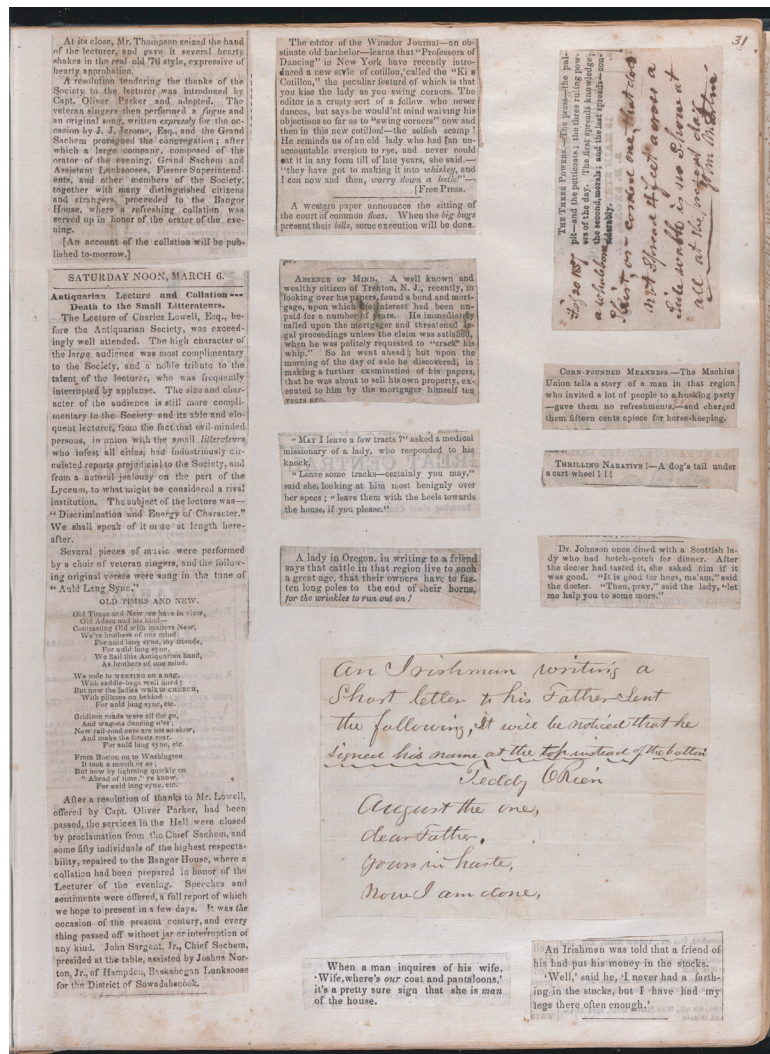 31
At its close, Mr. Thompson seized the hand
of the lecturer, and gave it several hearty
shakes in the real old '76 style, expressive of
hearty approbation.
A resolution tendering the thanks of the
Society to the lecturer was introduced by
Capt. Oliver Parker and adopted. The
veteran singers then performed a fugue and
an original song, written expressly for the oc-
casion by J. J. Jerome, Esq., and the Grand
Sachem prorogued the congregation; after
which a large company, composed of the
orator of the evening, Grand Sachem and
Assistant Lunksooses, Fissure Superintend-
ents, and other members of the Society,
together with many distinguished citizens
and strangers, proceeded to the Bangor
House, where a refreshing collation was
served up in honor of the orator of the eve-
ning.
[An account of the collation will be pub-
lished to-morrow.]
SATURDAY NOON, MARCH 6.
Antiquarian Lecture and Collation---
Death to the Small Litterateurs.
The Lecture of Charles Lowell, Esq., be-
fore the Antiquarian Society, was exceed-
ingly well attended. The high character of
the large audience was most complimentary
to the Society, and a noble tribute to the
talent of the lecturer, who was frequently
interrupted by applause. The size and char-
acter of the audience is still more compli-
mentary to the Society and its able and elo-
quent lecturer, from the fact that evil-minded
persons, in union with the small litterateurs
who infest all cities, had industriously cir-
culated reports prejudicial to the Society, and
from a natural jealousy on the part of the
Lyceum, to what might be considered a rival
institution. The subject of the lecture was—
"Discrimination and Energy of Character."
We shall speak of it more at length here-
after.
Several pieces of music were performed
by a choir of veteran singers, and the follow-
ing original verses were sung in the tune of
"Auld Lang Sync."
OLD TIMES AND NEW.
Old Times and New we have in view,
Old Adam and his kind—
Contrasting Old with matters New,
We're brothers of one mind:
For auld lang syne, my friends,
For auld lang syne,
We hail this Antiquarian band,
As brothers of one mind.
We rode to MEETING on a nag,
With saddle-bags well lined;
But now the ladies walk to CHURCH,
With pilhons on behind
For auld lang syne, etc.
Gridiron roads were all the go,
And wagons dancing o'er,
Now rail-road cars are not so slow,
And make the forests roar.
For auld lang syne, etc.
From Boston on to Washington
It took a month or so;
But now by lightning quickly on
"Ahead of time," ye know.
For auld lang syne, etc.
After a resolution of thanks to Mr. Lowell,
offered by Capt. Oliver Parker, had been
passed, the services in the Hall were closed
by proclamation from the Chief Sachem, and
some fifty individuals of the highest respecta-
bility, repaired to the Bangor House, where a
collation had been prepared in honor of the
Lecturer of the evening. Speeches and
sentiments were offered, a full report of which
we hope to present in a few days. It was the
occasion of the present century, and every
thing passed off without jar or interruption of
any kind. John Sargent, Jr., Chief Sachem,
presided at the table, assisted by Joshua Nor-
ton, Jr., of Hampden, Baskahegan Lunksoose
for the District of Sowadabscook.
The editor of the Windsor Journal—an ob-
stinate old bachelor—learns that "Professors of
Dancing" in New York have recently intro-
duced a new style of cotillon, called the "Kiss
Cotillon," the peculiar feature of which is that
you kiss the lady as you swing corners. The
editor is a crusty sort of a fellow who never
dances, but says he would'nt mind waiving his
objections so far as to "swing corners" now and
then in this new cotillon!—the selfish scamp!
He reminds us of an old lady who had an un-
accountable aversion to rye, and never could
eat it in any form till of late years, she said.—
"they have got to making it into whiskey, and
I can now and then, worry down a leetle"—
[Free Press.
A western paper announces the sitting of
the court of common fleas. When the big bugs
present their bills, some execution will be done.
ABSENCE OF MIND. A well known and
wealthy citizen of Trenton, N. J., recently, in
looking over his papers, found a bond and mort-
gage, upon which no interest had been un-
paid for a number of years. He immediately
called upon the mortgager and threatened le-
gal proceedings unless the claim was satisfied,
when he was politely requested to "crack his
whip." So he went ahead; but upon the
morning of the day of sale he discovered, in
making a further examination of his papers,
that he was about to sell his own property, ex-
ecuted to him by the mortgager himself ten
years ago.
"MAY I leave a few tracts?" asked a medical
missionary of a lady, who responded to his
knock.
"Leave some tracks—certainly you may,"
said she, looking at him most benignly over
her specs; "leave them with the heels towards
the house, if you please."
A lady in Oregon, in writing to a friend
says that cattle in that region live to such
a great age, that their owners have to fas-
ten long poles to the end of their horns,
for the wrinkles to run out on!
THE THREE POWERS.—The press—the pul-
pit—and the petticoats; the three ruling pow-
ers of the day. The first spreads knowledge;
the second, morals; and the last spreads—con-
siderably.
not Spread 4 feet across a
is no Show at
all at the present day
CORN-FOUNDED MEANNESS.—The Machias
Union tells a story of a man in that region
who invited a lot of people to a husking party
—gave them no refreshments,—and charged
them fifteen cents apiece for horse-keeping.
THRILLING NARATIVE!—A dog's tail under
a cart wheel!!!
Dr. Johnson once dined with a Scottish la-
dy who had hotch-potch for dinner. After
the docter had tasted it, she asked him if it
was good. "It is good for hogs, ma'am," said
the docter. "Then, pray," said the lady, "let
me help you to some more."
An Irishman writing a
Short letter to his Father Sent
the following, It will be noticed that he
signed his name at the top instead of the bottom
Teddy ORien
August the one,
dear Father,
Yours in haste,
Now I am done,
When a man inquires of his wife,
'Wife, where's our coat and pantaloons,'
it's a pretty sure sign that she is man
of the house.
An Irishman was told that a friend of
his had put his money in the stocks.
'Well,' said he, 'I never had a farth-
ing in the stocks, but I have had my
legs there often enough.'